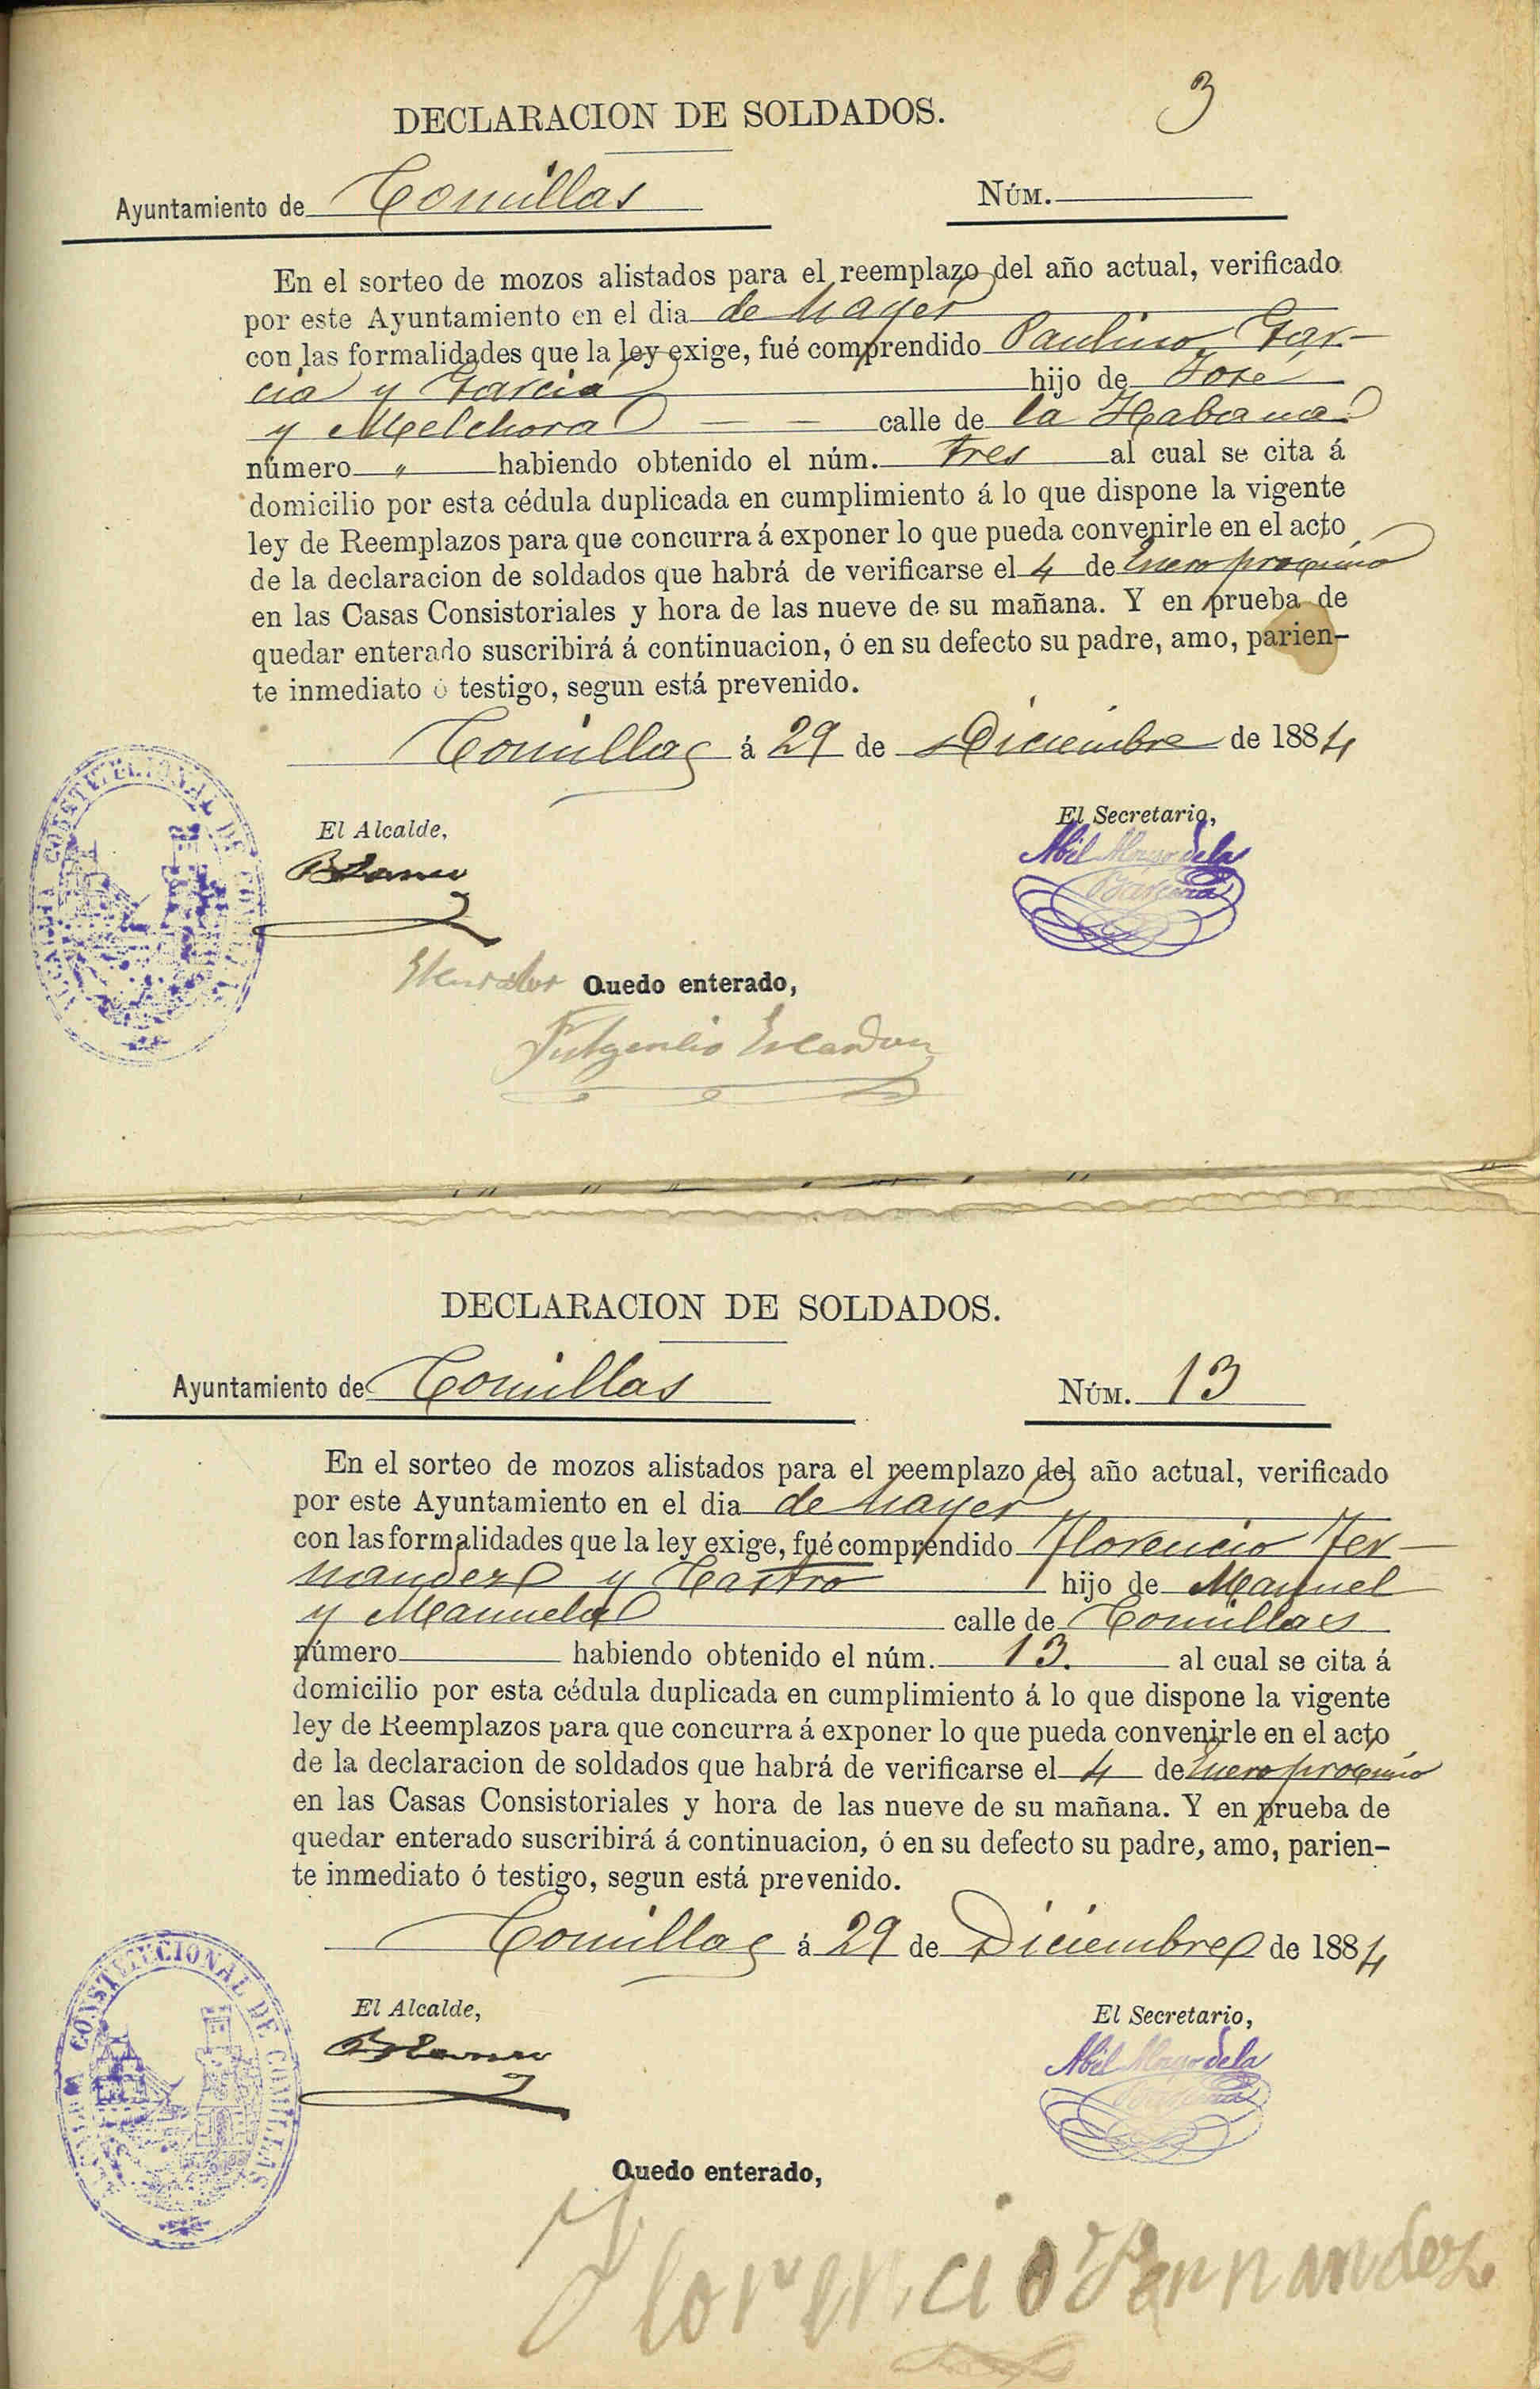 3
DECLARACION DE SOLDADOS.
Ayuntamiento de Comillas NÚM.
En el sorteo de mozos alistados para el reemplazo del año actual, verificado
por este Ayuntamiento en el dia de hayer
con las formalidades que la ley exige, fué comprendido Paulino Gar-
cia y Garcia hijo de José
y Melchora calle de la Habana
número " habiendo obtenido el núm. tres al cual se cita á
domicilio por esta cédula duplicada en cumplimiento á lo que dispone la vigente
ley de Reemplazos para que concurra á exponer lo que pueda convenirle en el acto
de la declaracion de soldados que habrá de verificarse el 4 de Enero proximo
en las Casas Consistoriales y hora de las nueve de su mañana. Y en prueba de
quedar enterado suscribirá á continuacion, ó en su defecto su padre, amo, parien-
te inmediato ó testigo, segun está prevenido.
Comillas á 29 de Diciembre de 1884
CONSTITUCIONAL DE COMILLAS
El Alcalde, El Secretario,
Abel Mayo de la
Barcena
Quedo enterado,
Fulgencio Escandon
DECLARACION DE SOLDADOS.
Ayuntamiento de Comillas NÚM. 13
En el sorteo de mozos alistados para el reemplazo del año actual, verificado
por este Ayuntamiento en el dia de hayer
con las formalidades que la ley exige, fué comprendido Florencio Fer-
nandez y Castro hijo de Manuel
y Manuela calle de Comillas
número habiendo obtenido el núm. 13. al cual se cita á
domicilio por esta cédula duplicada en cumplimiento á lo que dispone la vigente
ley de Reemplazos para que concurra á exponer lo que pueda convenirle en el acto
de la declaracion de soldados que habrá de verificarse el 4 de Enero proximo
en las Casas Consistoriales y hora de las nueve de su mañana. Y en prueba de
quedar enterado suscribirá á continuacion, ó en su defecto su padre, amo, parien-
te inmediato ó testigo, segun está prevenido.
Comillas á 29 de Diciembre de 1884
CONSTITUCIONAL DE COMILLAS
El Alcalde, El Secretario,
Abel Mayo de la
Barcena
Quedo enterado,
Florencio Fernandez